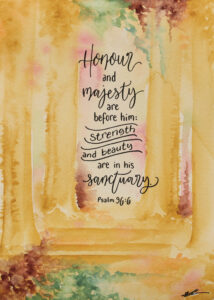 Honour
and
majesty
are
before him:
strength
and beauty
are in his
sanctuary
Psalm 96:6